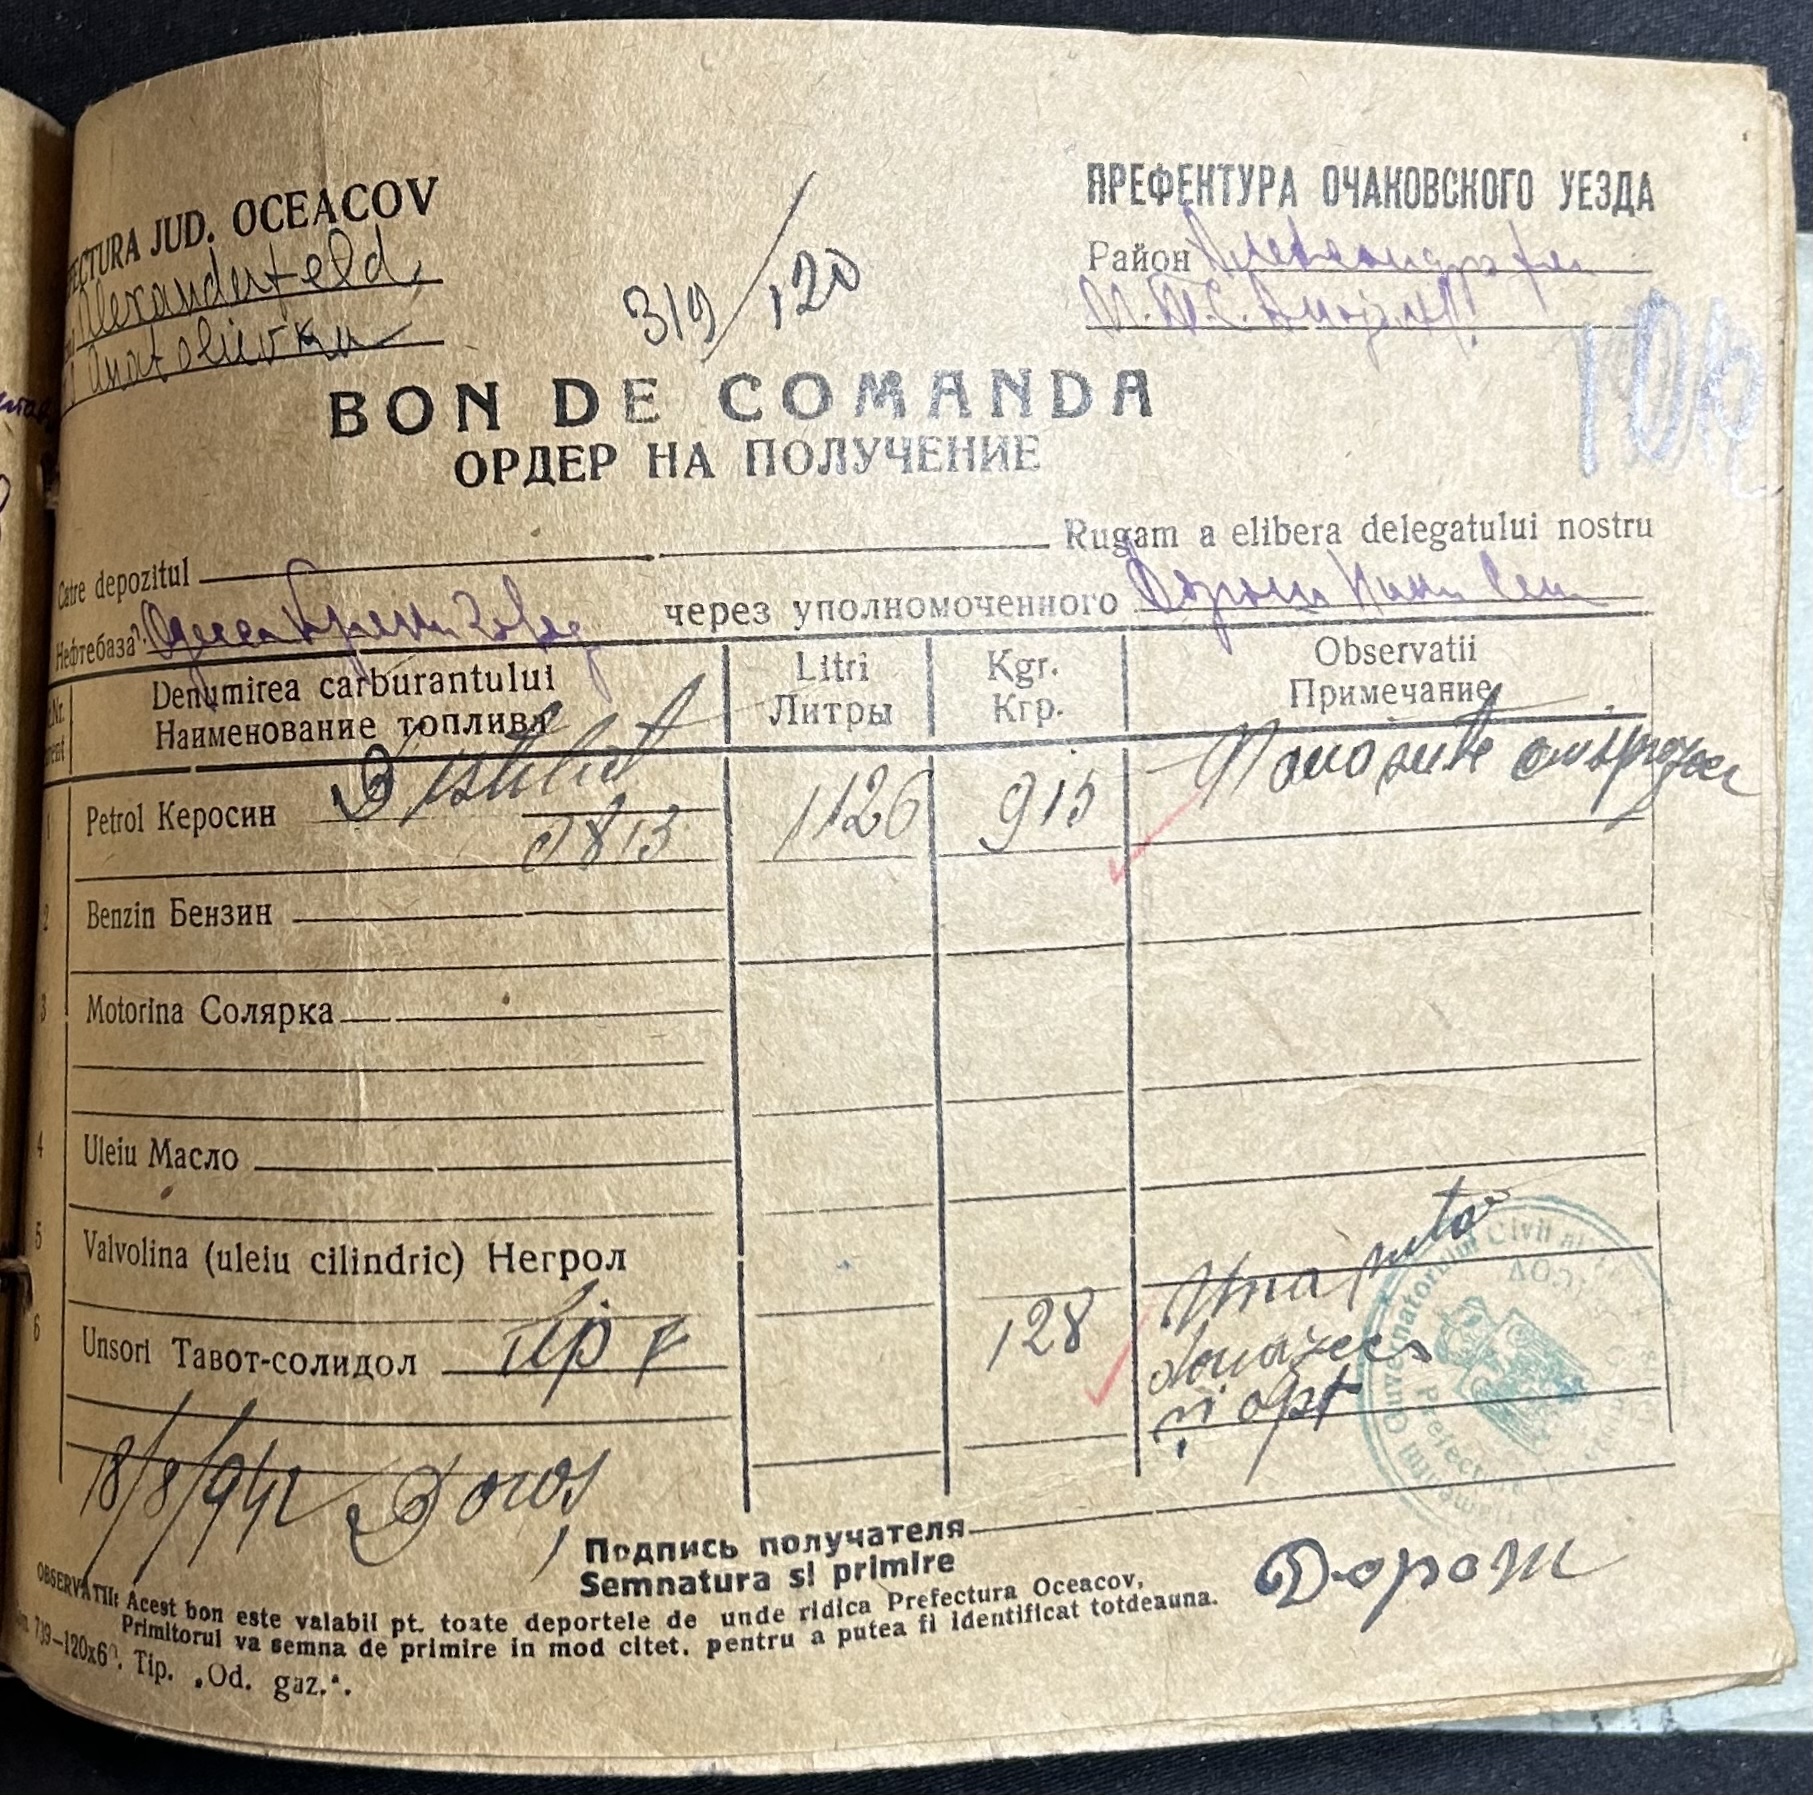 ECTURA JUD. OCEACOV
Alexanderfeld,
Anatolievka
319/120
ПРЕФЕКТУРА ОЧАКОВСКОГО УЕЗДА
Район
BON DE COMANDA
ОРДЕР НА ПОЛУЧЕНИЕ
Catre depozitul Rugam a elibera delegatului nostru
Нефтебаза через уполномоченного
Nr. Denumirea carburantului Litri Kgr. Observatii
Наименование топлива Литры Кгр. Примечание
1 Petrol Керосин Distilat 1126 915
0813
2 Benzin Бензин
3 Motorina Солярка
4 Uleiu Масло
5 Valvolina (uleiu cilindric) Негрол
6 Unsori Тавот-солидол Tip F 128 Una suta
douazeci
și opt
18/8/942 Doroș
Подпись получателя
Semnatura si primire
Дорош
OBSERVATII: Acest bon este valabil pt. toate deportele de unde ridica Prefectura Oceacov,
Primitorul va semna de primire in mod citet. pentru a putea fi identificat totdeauna.
739—120x6 . Tip. „Od. gaz.".